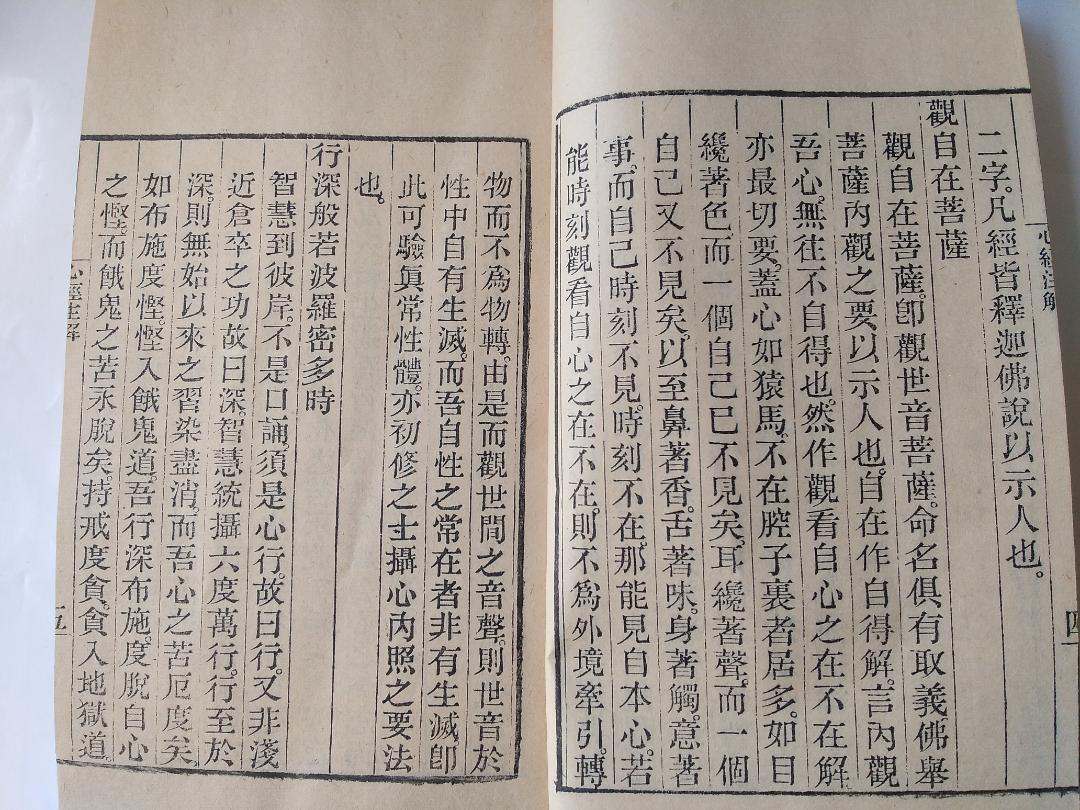 心經注解
二字。凡經皆釋迦佛說以示人也。
觀自在菩薩
觀自在菩薩。卽觀世音菩薩。命名俱有取義。佛舉
菩薩內觀之要以示人也。自在作自得解。言內觀
吾心。無往不自得也。然作觀看自心之在不在解
亦最切要。蓋心如猿馬。不在腔子裏者居多。如目
纔著色。而一個自己已不見矣。耳纔著聲。而一個
自己又不見矣。以至鼻著香。舌著味。身著觸。意著
事。而自己時刻不見。時刻不在。那能見自本心。若
能時刻觀看自心之在不在。則不爲外境牽引。轉
四
物而不爲物轉。由是而觀世間之音聲。則世音於
性中自有生滅。而吾自性之常在者非有生滅卽
此可驗眞常性體。亦初修之士攝心內照之要法
也。
行深般若波羅密多時
智慧到彼岸。不是口誦。須是心行。故曰行。又非淺
近倉卒之功故曰深。智慧統攝六度萬行。行至於
深。則無始以來之習染盡消。而吾心之苦厄度矣
如布施度慳。慳入餓鬼道。吾行深布施。度脫自心
之慳。而餓鬼之苦永脫矣。持戒度貪。貪入地獄道。
心經注解
五